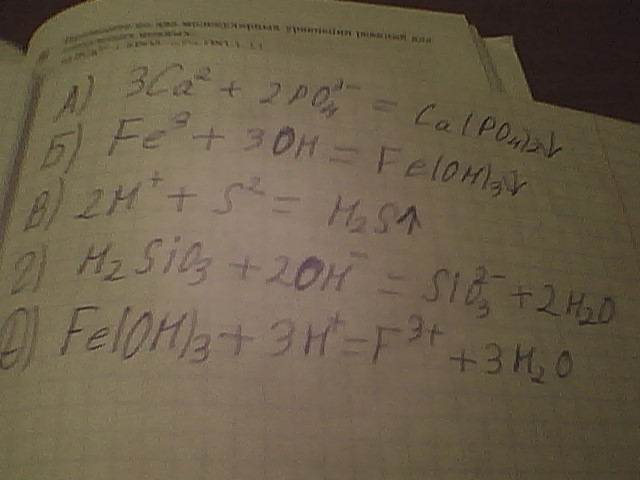 А) 3Ca² + 2PO₄³⁻ = Ca(PO₄)₂↓
Б) Fe³ + 3OH = Fe(OH)₃↓
В) 2H⁺ + S² = H₂S↑
Г) H₂SiO₃ + 2OH⁻ = SiO₃²⁻ + 2H₂O
Е) Fe(OH)₃ + 3H⁺ = F³⁺ + 3H₂O